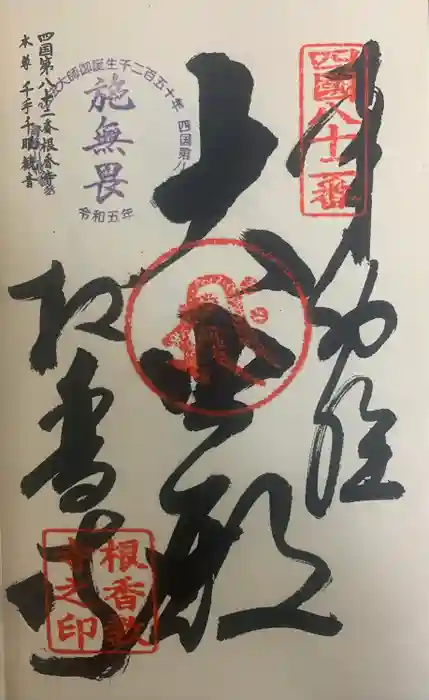 四國八十二番
奉納経
大悲殿
弘法大師御誕生千二百五十年
施無畏
令和五年
四国第八十二番根香寺
本尊 千手千眼観音
根香寺
根香教
寺之印